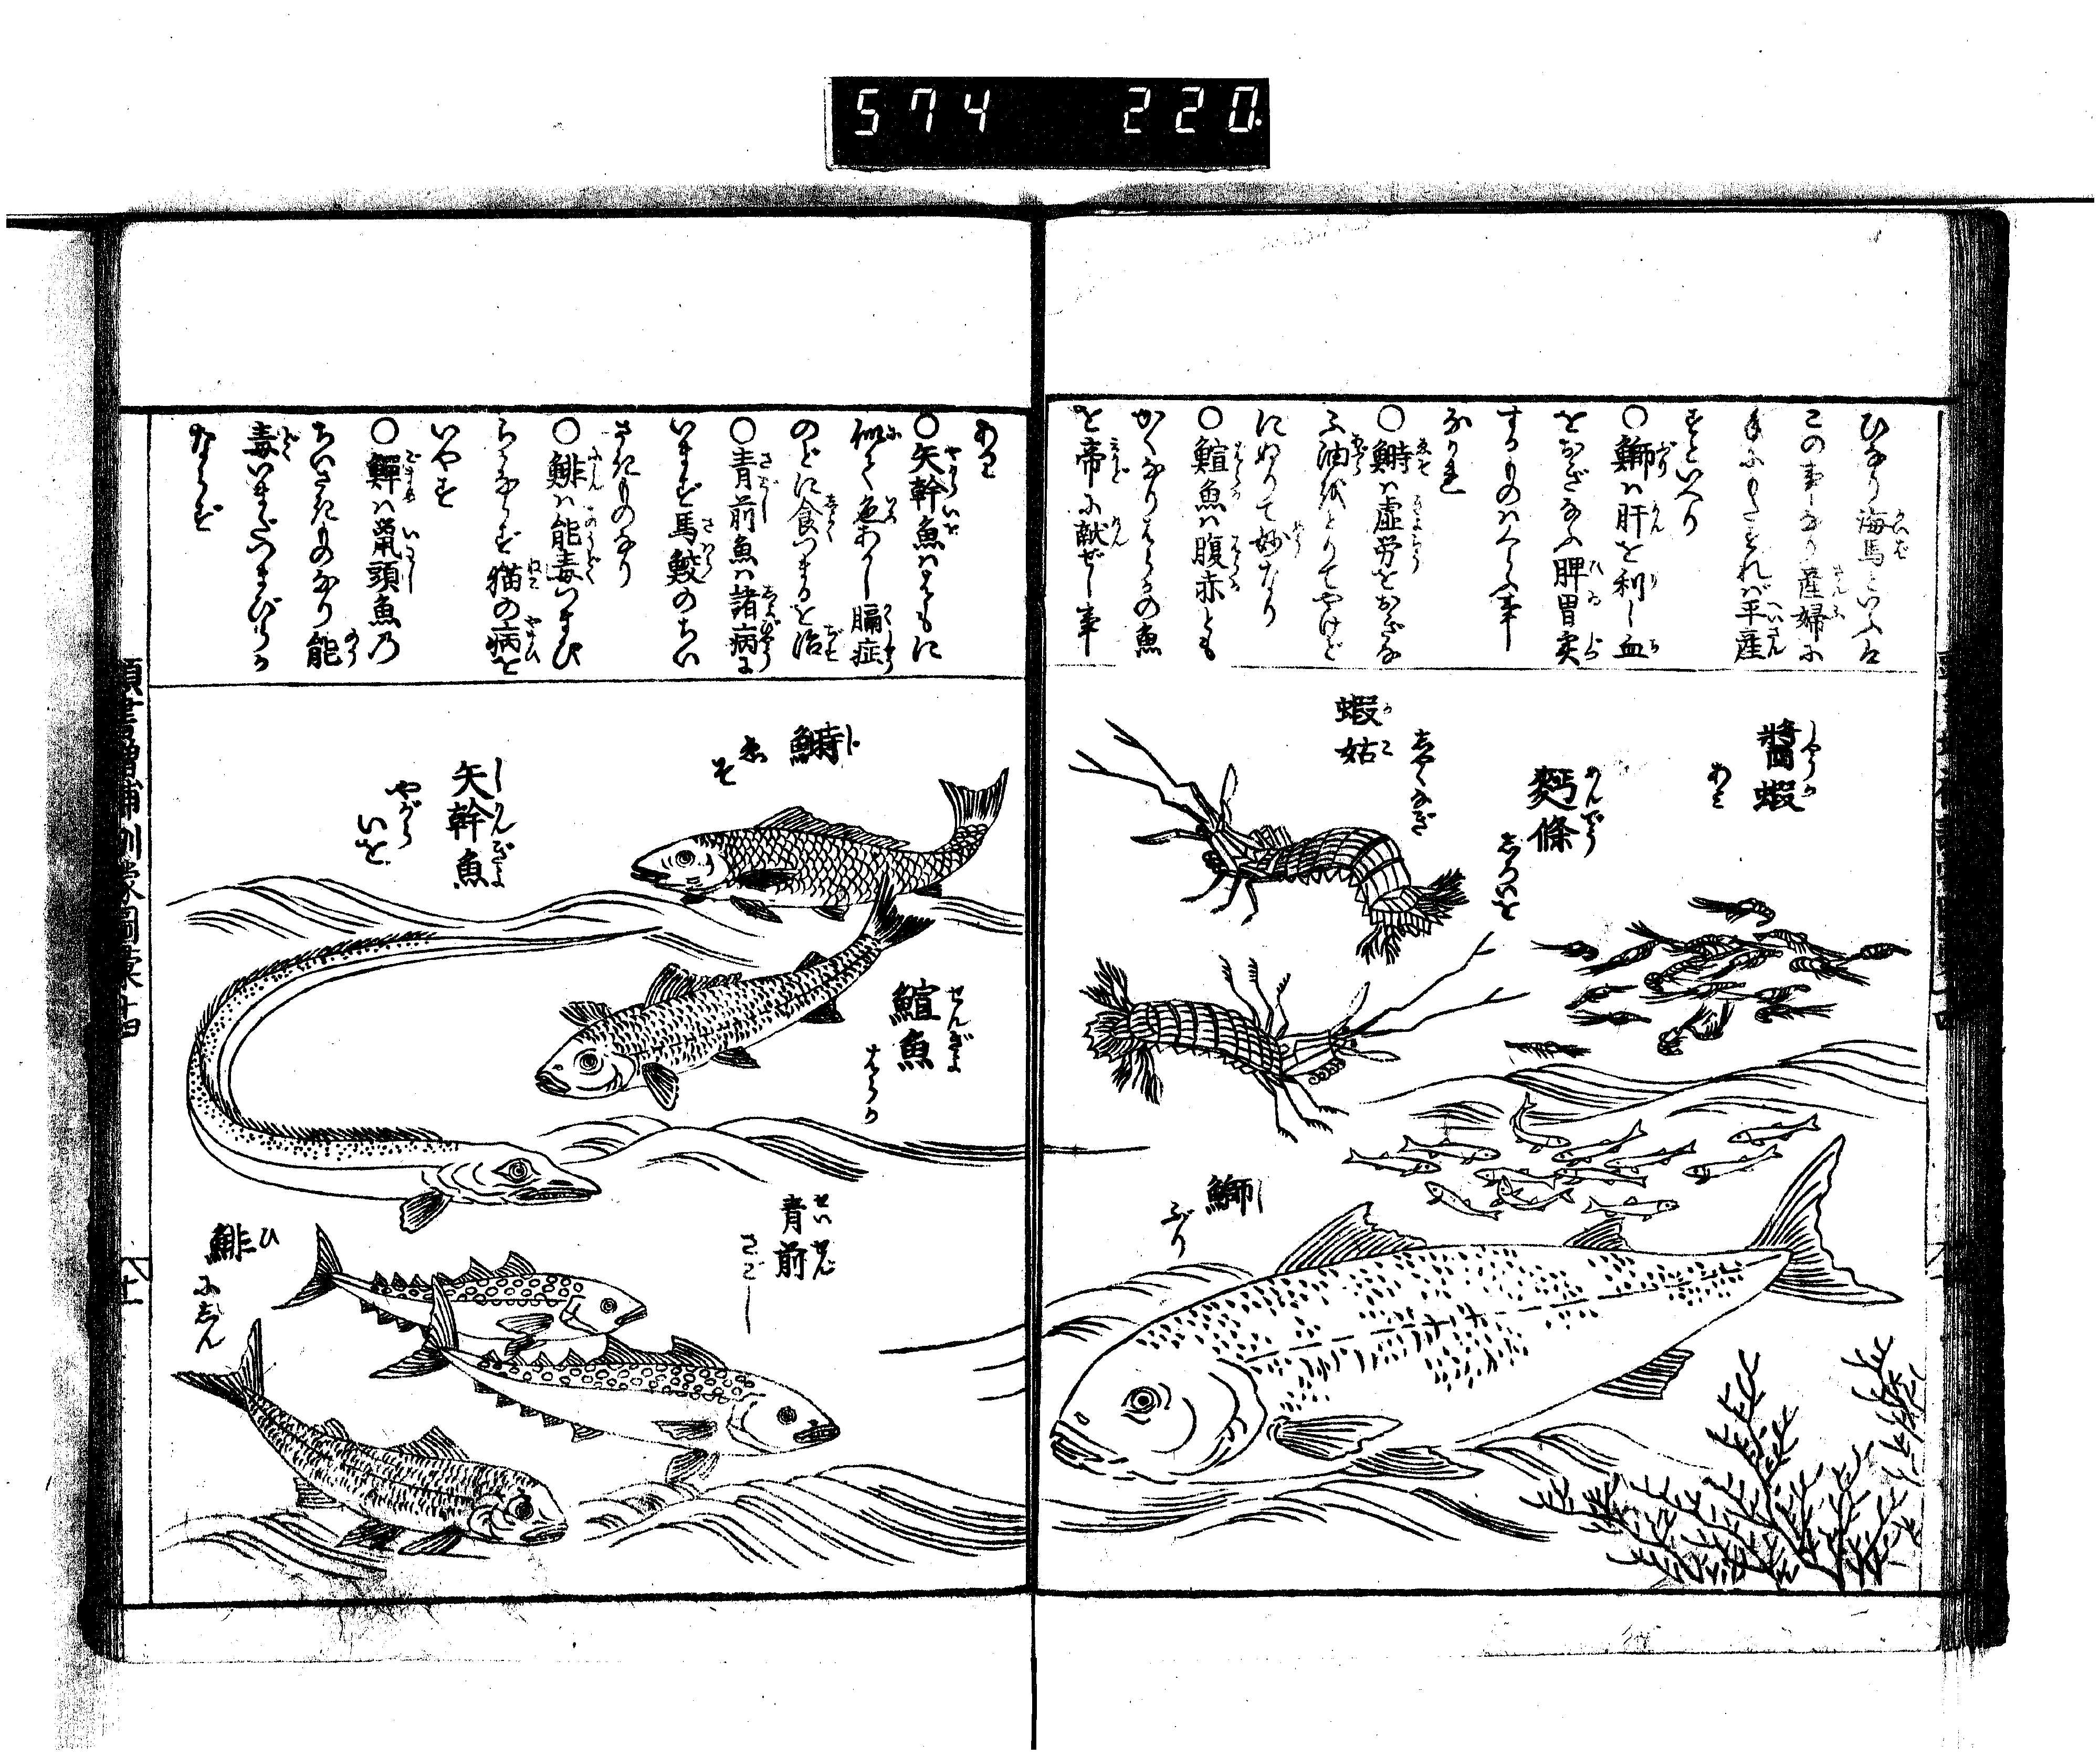 574 220
ひなり海馬といふは
この事なり産婦に
すといへり
○鰤は肝を利し血
をおぎなふ脾胃実
するものハくふ事
なかれ
○鰣は虚労をおぎな
ふ油をとりてやけど
にぬりて妙なり
○鰚魚は腹赤とも
かくなりはらかの魚
を帝に献ぜし事
あり
○矢幹魚ハはもに
似て色あかし膈症
のどに食つまるを治
○青前魚ハ諸病に
いまず馬鮫のちい
さきものなり
○鯡ハ能毒つまび
らかならず猫の病を
いやす
頭魚乃
ちいさきものなり能
毒いまだつまびらか
ならず
醤蝦 しやうか
あみ
麪條 めんでう
しろいを
蝦姑 かこ
しやくなぎ
鰤 し
ぶり
鰣 じ
ゑそ
矢幹魚 しかんぎよ
やがらいを
鰚魚 せんぎよ
はらか
青前 せいぜん
さごし
鯡 ひ
にしん
頭書増補訓蒙圖彙十四